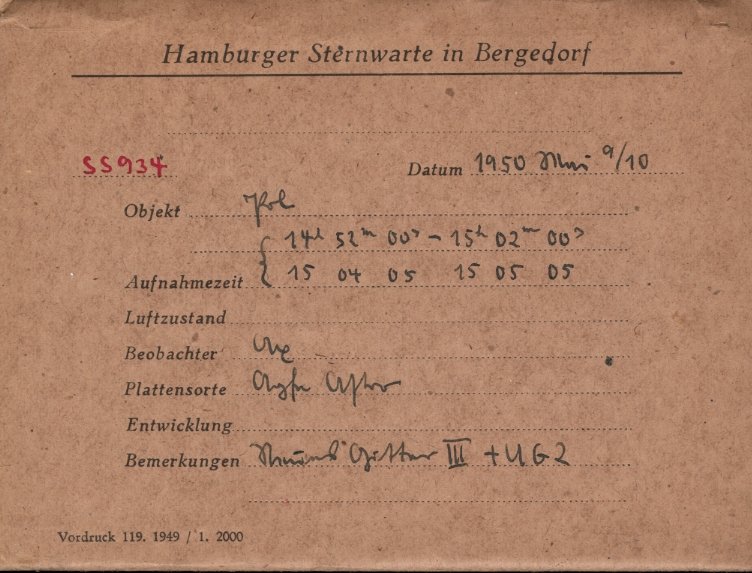 Hamburger Sternwarte in Bergedorf
SS934 Datum 1950 Mai 9/10
Objekt Pol
14h 52m 00s – 15h 02m 00s
Aufnahmezeit { 15 04 05 15 05 05
Luftzustand
Beobachter
Plattensorte Agfa Astro
Entwicklung
Bemerkungen Gitter III + UG2
Vordruck 119. 1949 / 1. 2000